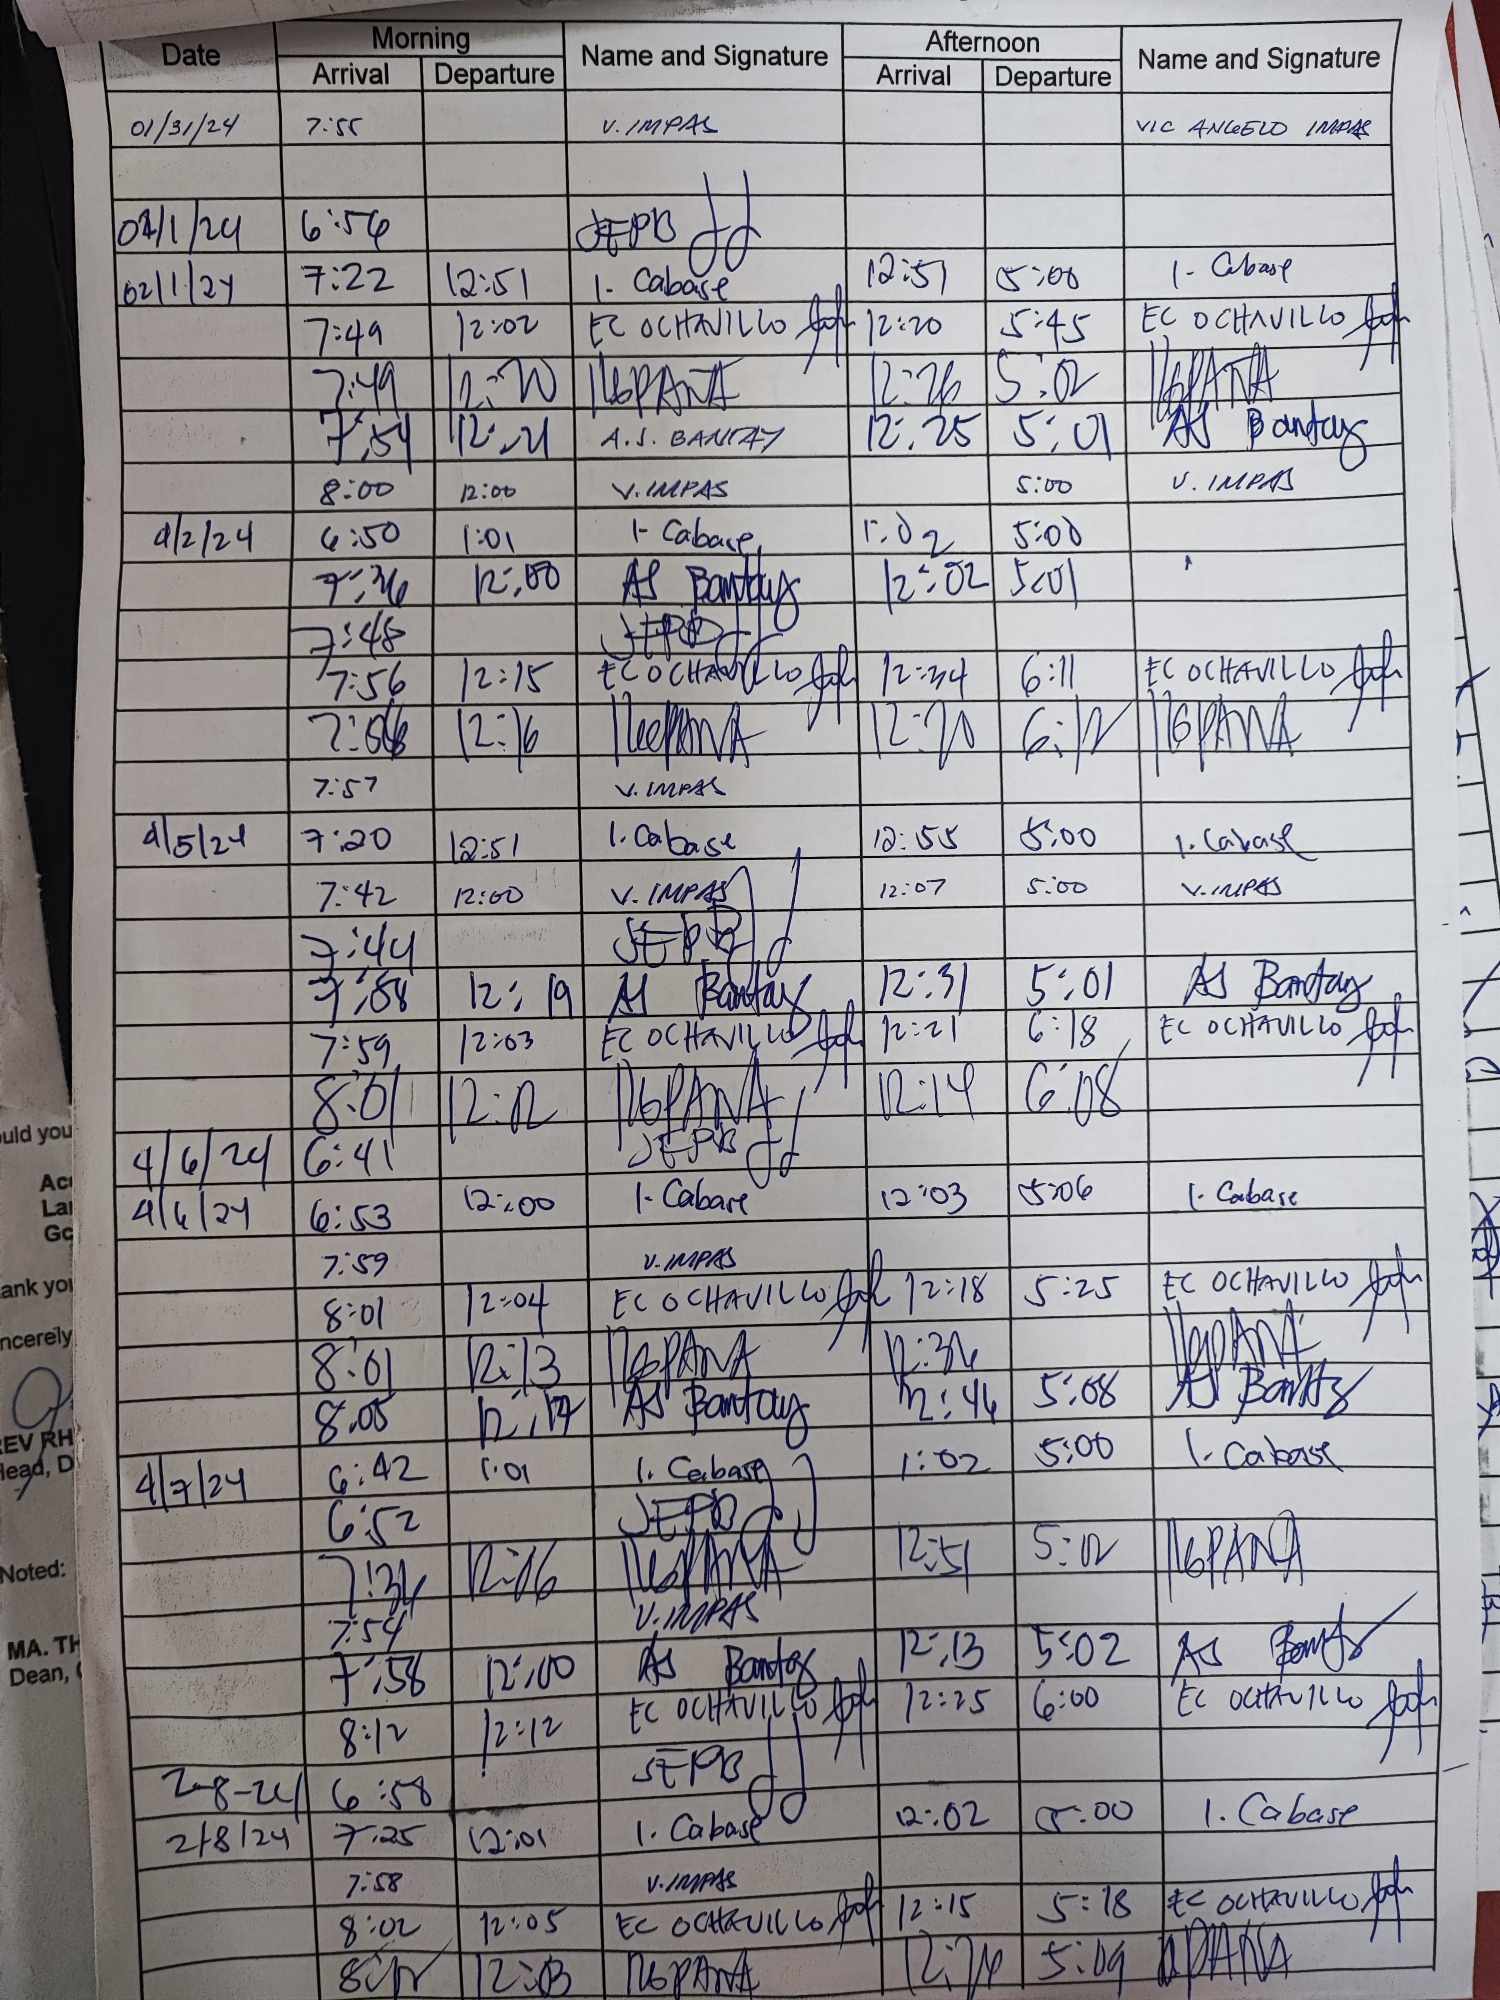 Date Morning Name and Signature Afternoon Name and Signature
Arrival Departure Arrival Departure
01/31/24 7:55 V. IMPAS VIC ANGELO IMPAS
6:56 JEPB
02/1/24 7:22 12:51 I. Cabase 12:51 5:00 I. Cabase
7:49 12:02 EC OCHAVILLO 12:20 5:45 EC OCHAVILLO
7:49 12:20 5:02
7:54 12:21 A.S. BANTAY 12:25 5:01 AS Bantay
8:00 12:00 V. IMPAS 5:00 V. IMPAS
4/2/24 6:50 1:01 I. Cabase 1:02 5:00
7:36 12:00 AS Bantay 12:02 5:01
7:48 JEPB
7:56 12:15 EC OCHAVILLO 12:34 6:11 EC OCHAVILLO
12:16 6:12
7:57 V. IMPAS
4/5/24 7:20 12:51 I. Cabase 12:55 5:00 I. Cabase
7:42 12:00 V. IMPAS 12:07 5:00 V. IMPAS
7:44 JEPB
7:58 12:19 AS Bantay 12:31 5:01 AS Bantay
7:59 12:03 EC OCHAVILLO 12:21 6:18 EC OCHAVILLO
8:01 12:12 12:14 6:08
4/6/24 6:41 JEPB
4/6/24 6:53 12:00 I. Cabase 12:03 5:06 I. Cabase
7:59 V. IMPAS
8:01 12:04 EC OCHAVILLO 12:18 5:25 EC OCHAVILLO
8:01 12:13 12:36
8:05 AS Bantay 12:46 5:08 AS
4/7/24 6:42 1:01 I. Cabase 1:02 5:00 I. Cabase
6:52 JEPB
7:36 12:51 5:02
7:54 V. IMPAS
7:58 12:00 AS 12:13 5:02 AS
8:12 12:12 EC OCHAVILLO 12:25 6:00 EC OCHAVILLO
2-8-24 6:58 JEPB
2/8/24 7:25 12:01 I. Cabase 12:02 5:00 I. Cabase
7:58 V. IMPAS
8:02 12:05 EC OCHAVILLO 12:15 5:18 EC OCHAVILLO
12:03 5:09
uld you
ank you
ncerely
EV RH
Noted:
MA. TH
Dean,